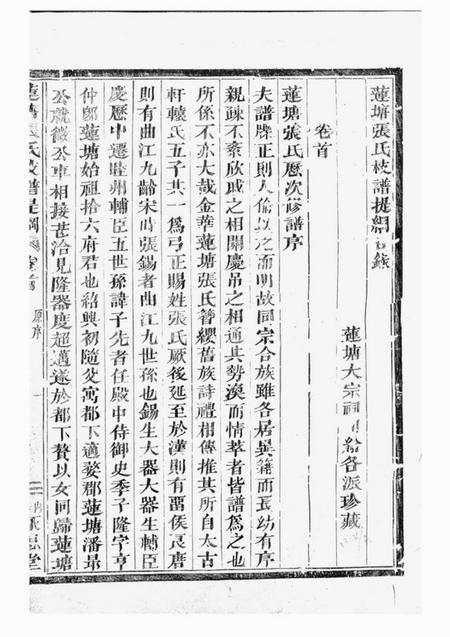 蓮塘張氏枝譜提綱目錄
蓮塘大宗祠 給各派珍藏
卷首
蓮塘張氏歷次修譜序
夫譜牒正則人倫以之而明故同宗合族雖各居異籍而長幼有序
親疎不紊欣戚之相關慶吊之相通其勢渙而情萃者皆譜為之也
所係不亦大哉金華蓮塘張氏簪纓舊族詩禮相傳推其所自太古
軒轅氏五子其一為弓正賜姓張氏厥後延至於漢則有留侯良唐
則有曲江九齡宋時張錫者曲江九世孫也錫生大器大器生輔臣
慶歷中遷睦州輔臣五世孫諱子先者任殿中侍御史季子隆字亨
仲即蓮塘始祖拾六府君也紹興初隨父寓都下適婺郡蓮塘潘昻
公就徵公車相接茞洽見隆器度超邁遂於都下贅以女同歸蓮塘
蓮塘張氏枝譜提綱 卷首 原序 一 承志堂